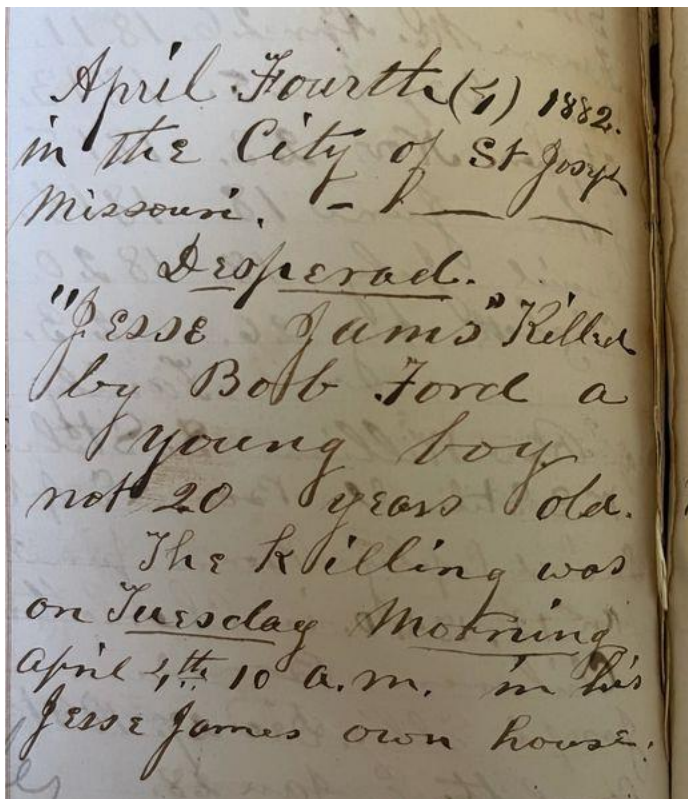 April Fourth (4) 1882.
in the City of St Joseph
Missouri.
Desperad.
"Jesse Jams" Killed
by Bob Ford a
young boy
not 20 years old.
The Killing was
on Tuesday Morning
April 4th 10 a.m. in his
Jesse James own house.